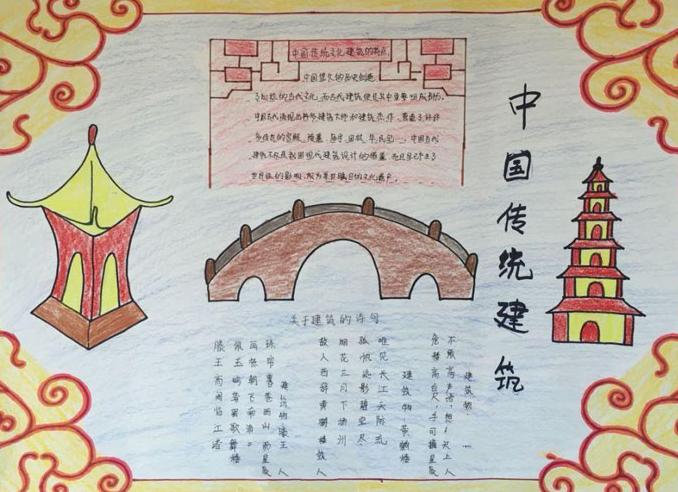 中国传统建筑
中国传统文化建筑的特点
中国悠久的历史创造
了灿烂的古代文化,而古代建筑便是其中重要组成部分。
中国古代涌现出许多建筑大师和建筑杰作,营造了许许
多传世的宫殿、陵墓、庙宇、园林、民 中国古代
建筑不仅是我国现代建筑设计的借鉴,而且早已产生了
世界性的影响,成为举世瞩目的文化遗产。
关于建筑的诗句
建筑物:
不敢高声语,恐 天上人
危楼高百尺,手可摘星辰
建筑物:黄鹤楼
唯见长江天际流
孤帆远影碧空尽
烟花三月下扬州
故人西辞黄鹤楼 故人
建筑物滕王
珠帘暮卷西山雨
画栋朝飞南浦
佩玉鸣鸾罢歌舞
滕王高阁临江渚